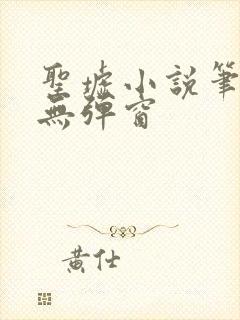 聖墟小說筆
無彈窗
黃仕